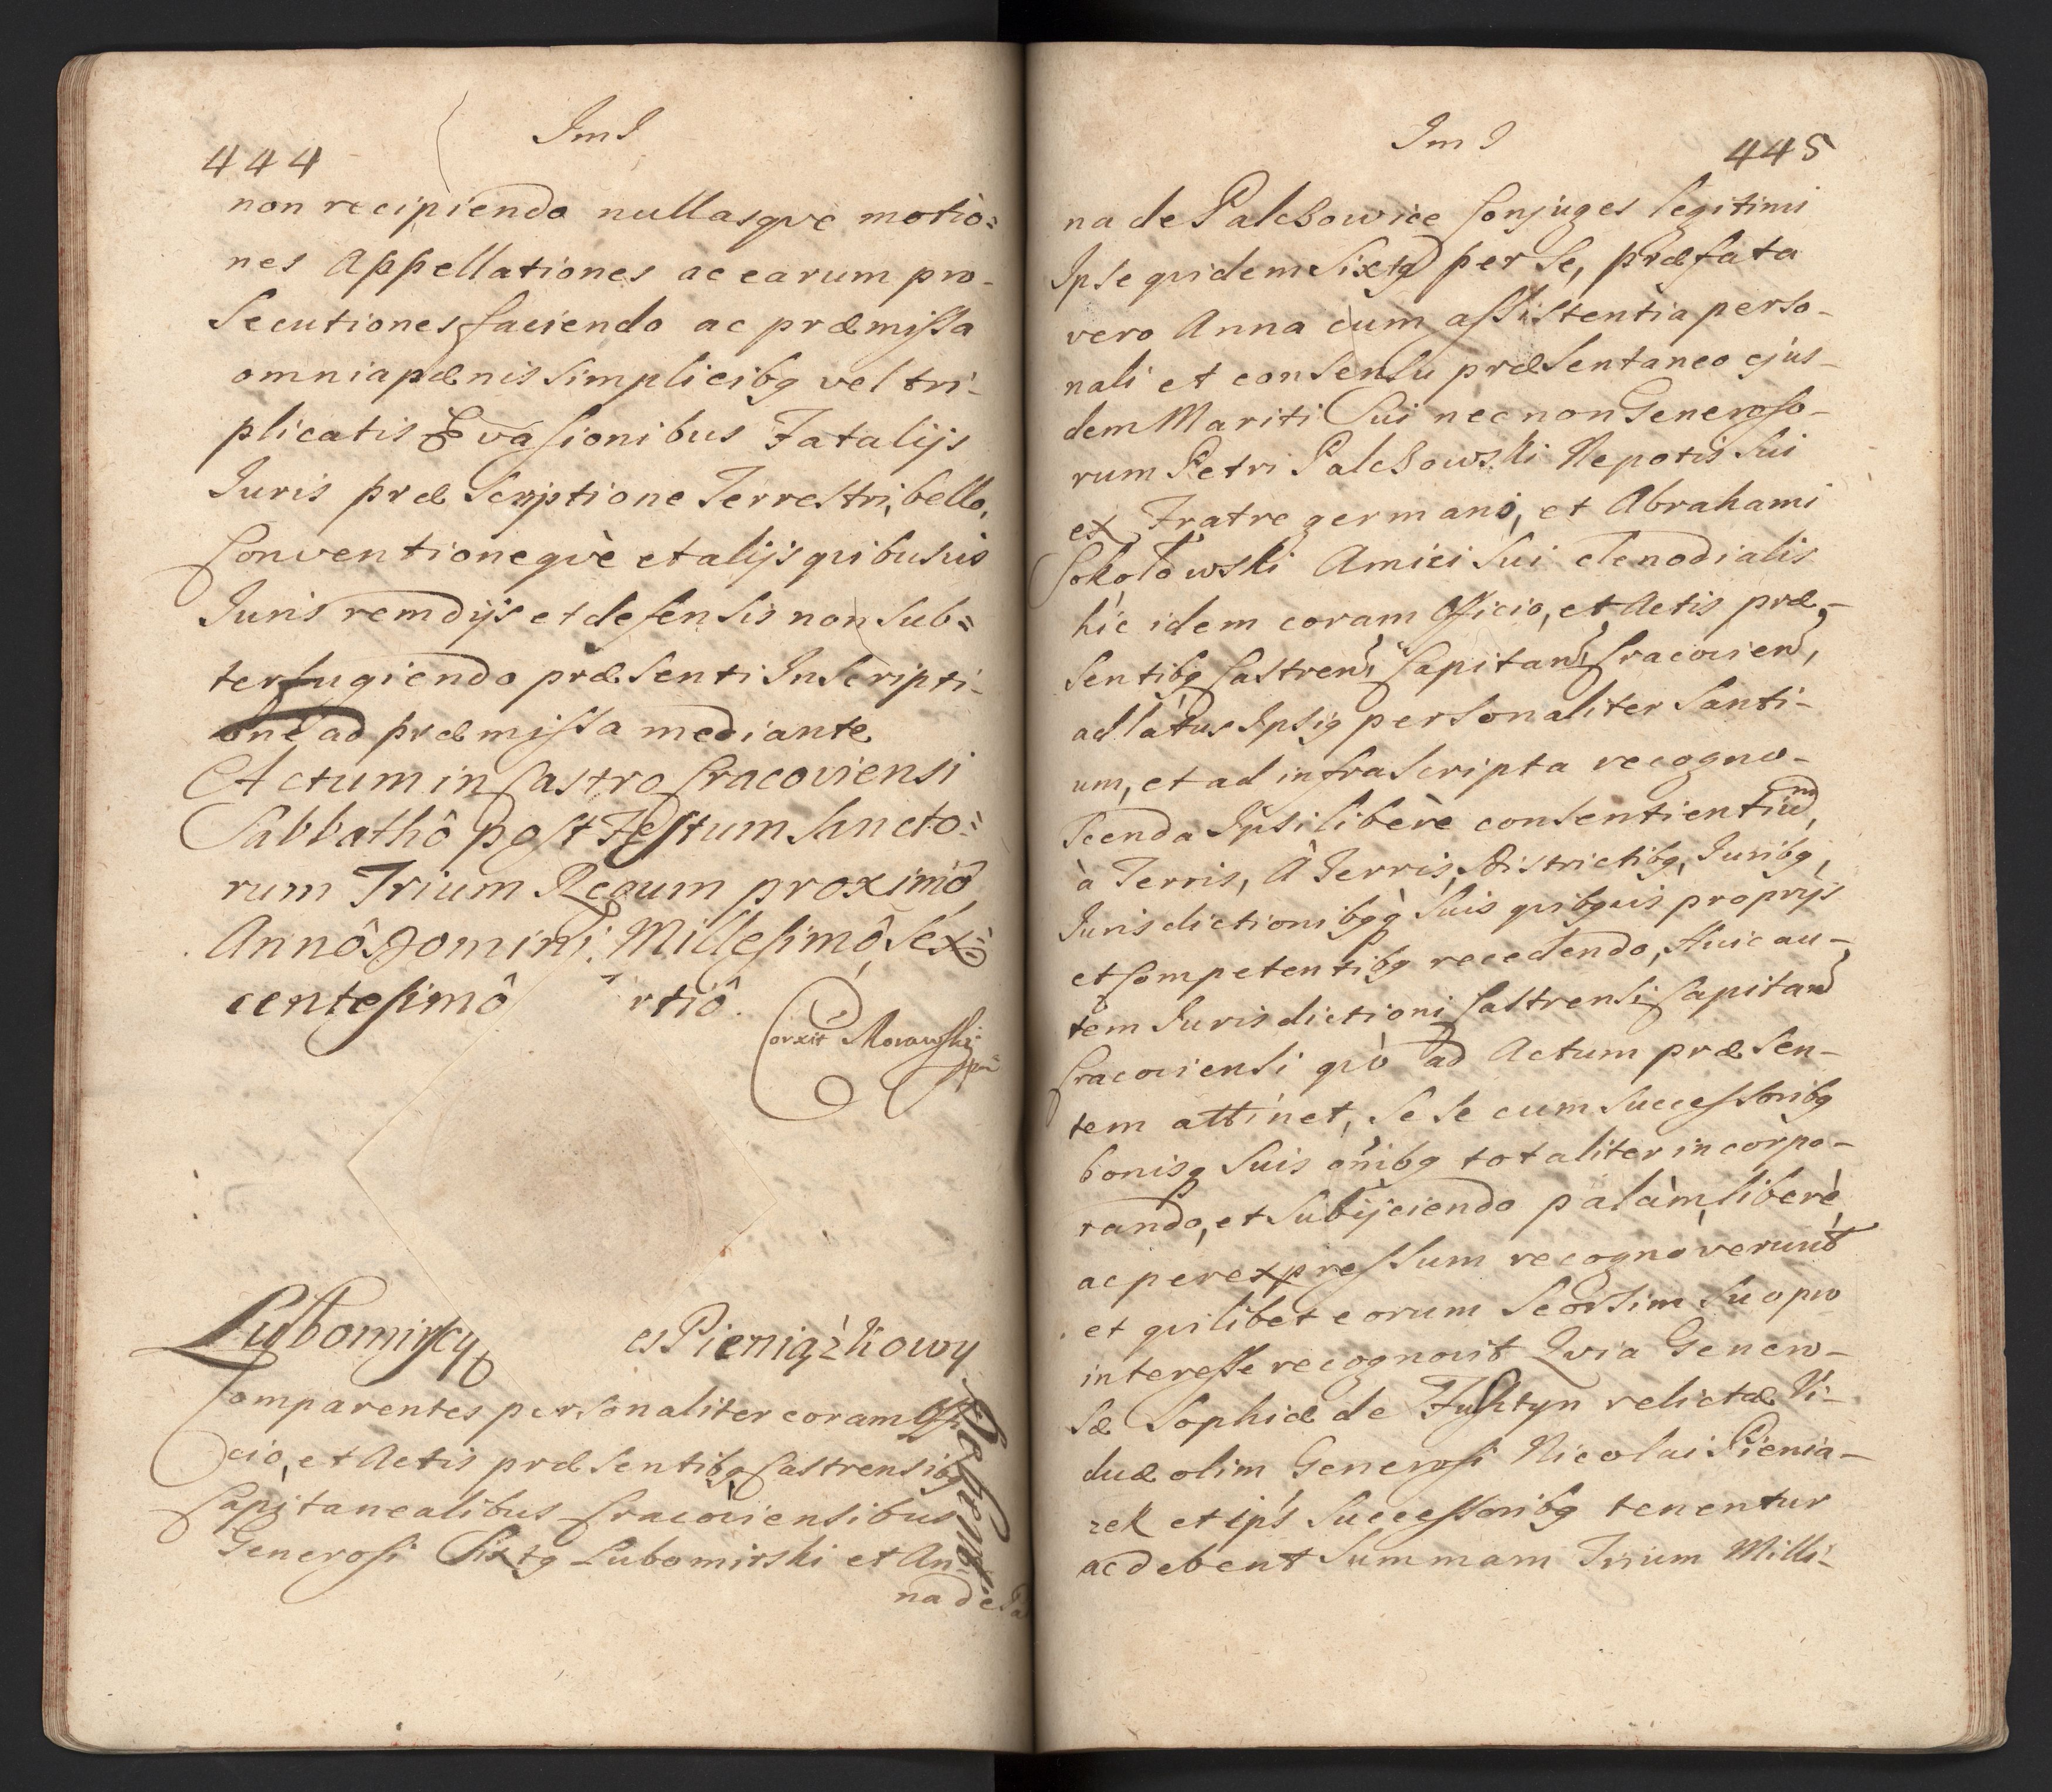 444
ImI
non recipiendo nullasqve motio=
nes Appellationes ac earum pro-
secutiones faciendo ac præmissa
omnia pænis simplicibq vel tri-
plicatis Evasionibus Fatalijs
Iuris præscriptione Terrestri, bello,
Conventioneqvè et alijs qvibusvis
Iuris remdijs et defensis non sub=
terfugiendo præsenti Inscripti-
one ad præmissa mediante
Actum in Castro Cracoviensi
Sabbathô post Festum Sancto=
rum Trium Regum proximô
Annô Domini Millesimô, Sex=
centesimô rtiô.
Corxit Morawski
Lubomirscy es Pieniążkowy
Comparentes personaliter coram Offi
cio, et Actis præsentibq Castrensibq
Capitanealibus Cracoviensibus
Generosi Sixtq Lubomirski et An=
na de Pa
ImI
445
na de Palczowice Conjuges legitimi
Ipse qvidem Sixtq per se, præfata
vero Anna cum assistentia perso-
nali et consensu præsentaneo ejus-
dem Mariti Sui nec non Generoso-
rum Petri Palczowski Nepotis sui
ex Fratre germano, et Abrahami
Sokołowski Amici sui
hic idem coram Officio, et Actis præ-
sentibq Castren, Capitan, Cracovien,
ad latus Ipsiq personaliter santi-
um, et ad infrascripta recogno-
scenda Ipsi liberè consentientium,
à Terris, A Terris, Districtibq, Iuribq,
Iurisdictionibqq suis qvibqvis proprijs
et Competentibq recedendo, Huic au-
tem Jurisdictioni Castrensi Capitan
Cracoviensi qvò ad Actum præsen-
tem attinet, sese cum successoribq
bonisq suis oñibq totaliter incorpo-
rando, et subijciendo palàm, liberè,
ac per expressum recognoverunt
et qvilibet eorum seorsim suo pro
interesse recognovit Qvia Genero-
sæ Sophiæ de Fulsztyn relictæ Vi-
duæ olim Generosi Nicolai Pienia-
zek et ips Successoribq tenentur
ac debent Summam Trium Milli-